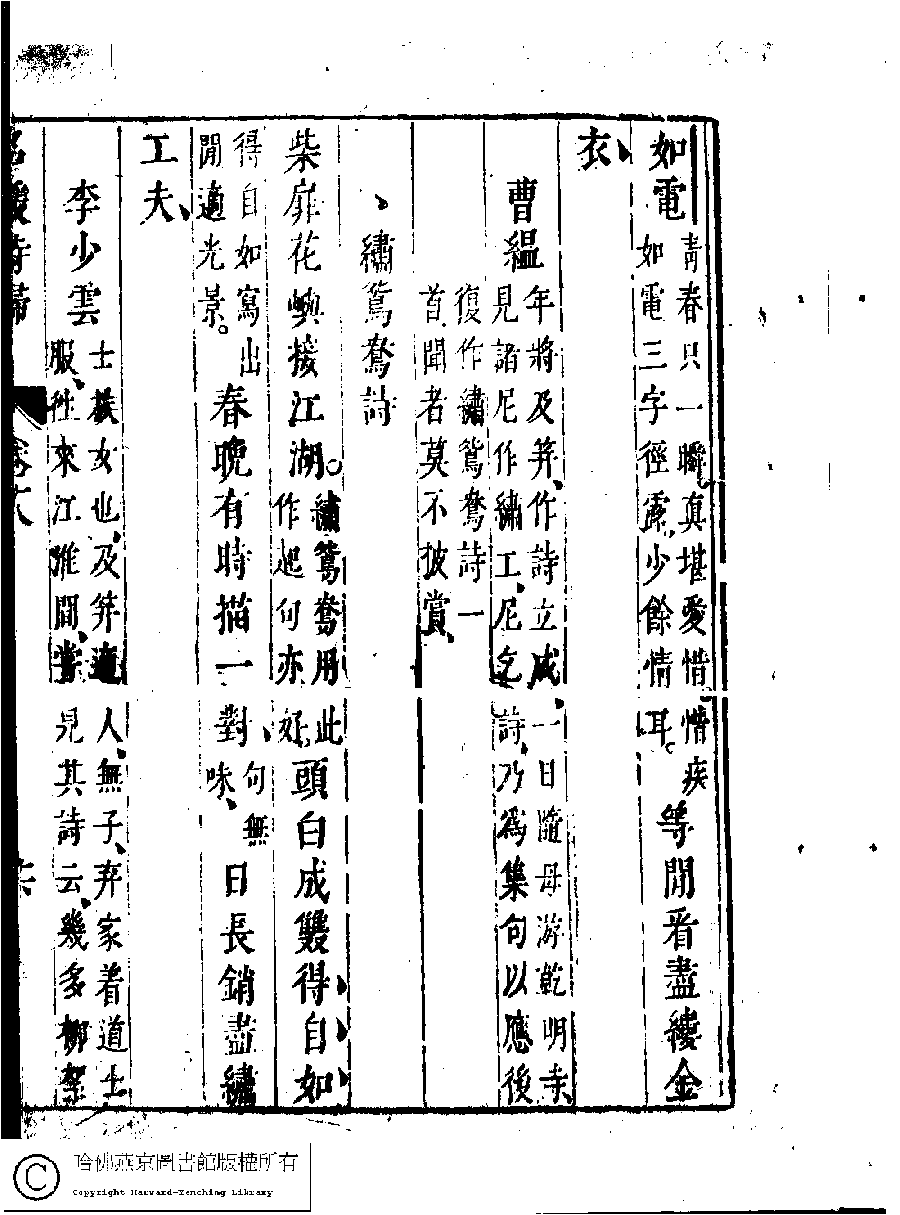 如電青春只一瞬真堪愛惜惜疾
如電三字徑露少餘情耳。等閒看盡縷金
衣、
曹緼年將及笄、作詩立成、一日隨母游乾明寺、
見諸尼作繡工、尼乞詩、乃為集句以應後
復作繡鴛鴦詩一
首、聞者莫不披賞、
繡鴛鴦詩
柴扉花嶼接江湖。繡鴛鴦用此
作起句亦好。頭白成雙得自如
得自如寫出
閒適光景。春晚有時描一對、句無
味、日長銷盡繡
工夫、
李少雲士族女也、及笄適人、無子、弃家着道士
服、往來江淮間、嘗見其詩云、幾多柳絮
名媛詩歸
卷十八
哈佛燕京圖書館版權所有
Copyright Harvard-Yenching Library